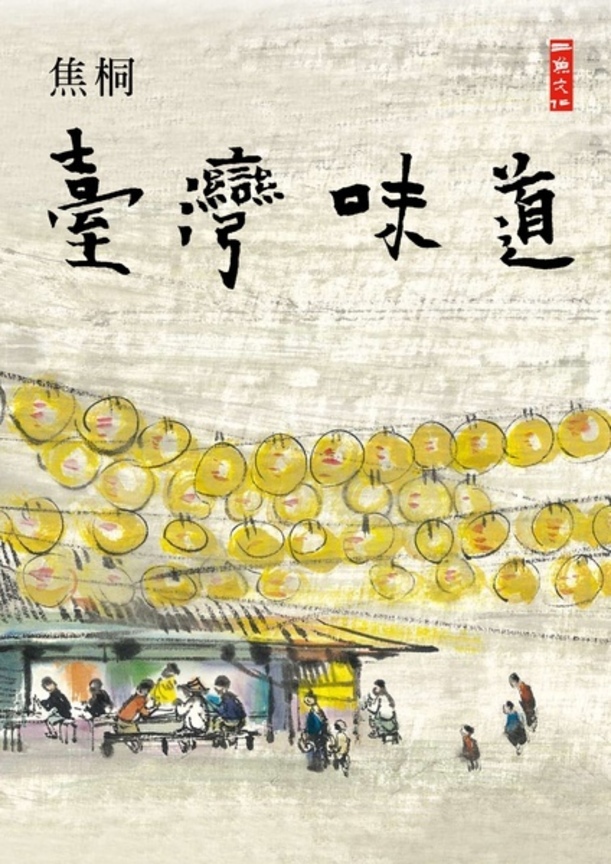 焦桐
二魚文化
臺灣味道